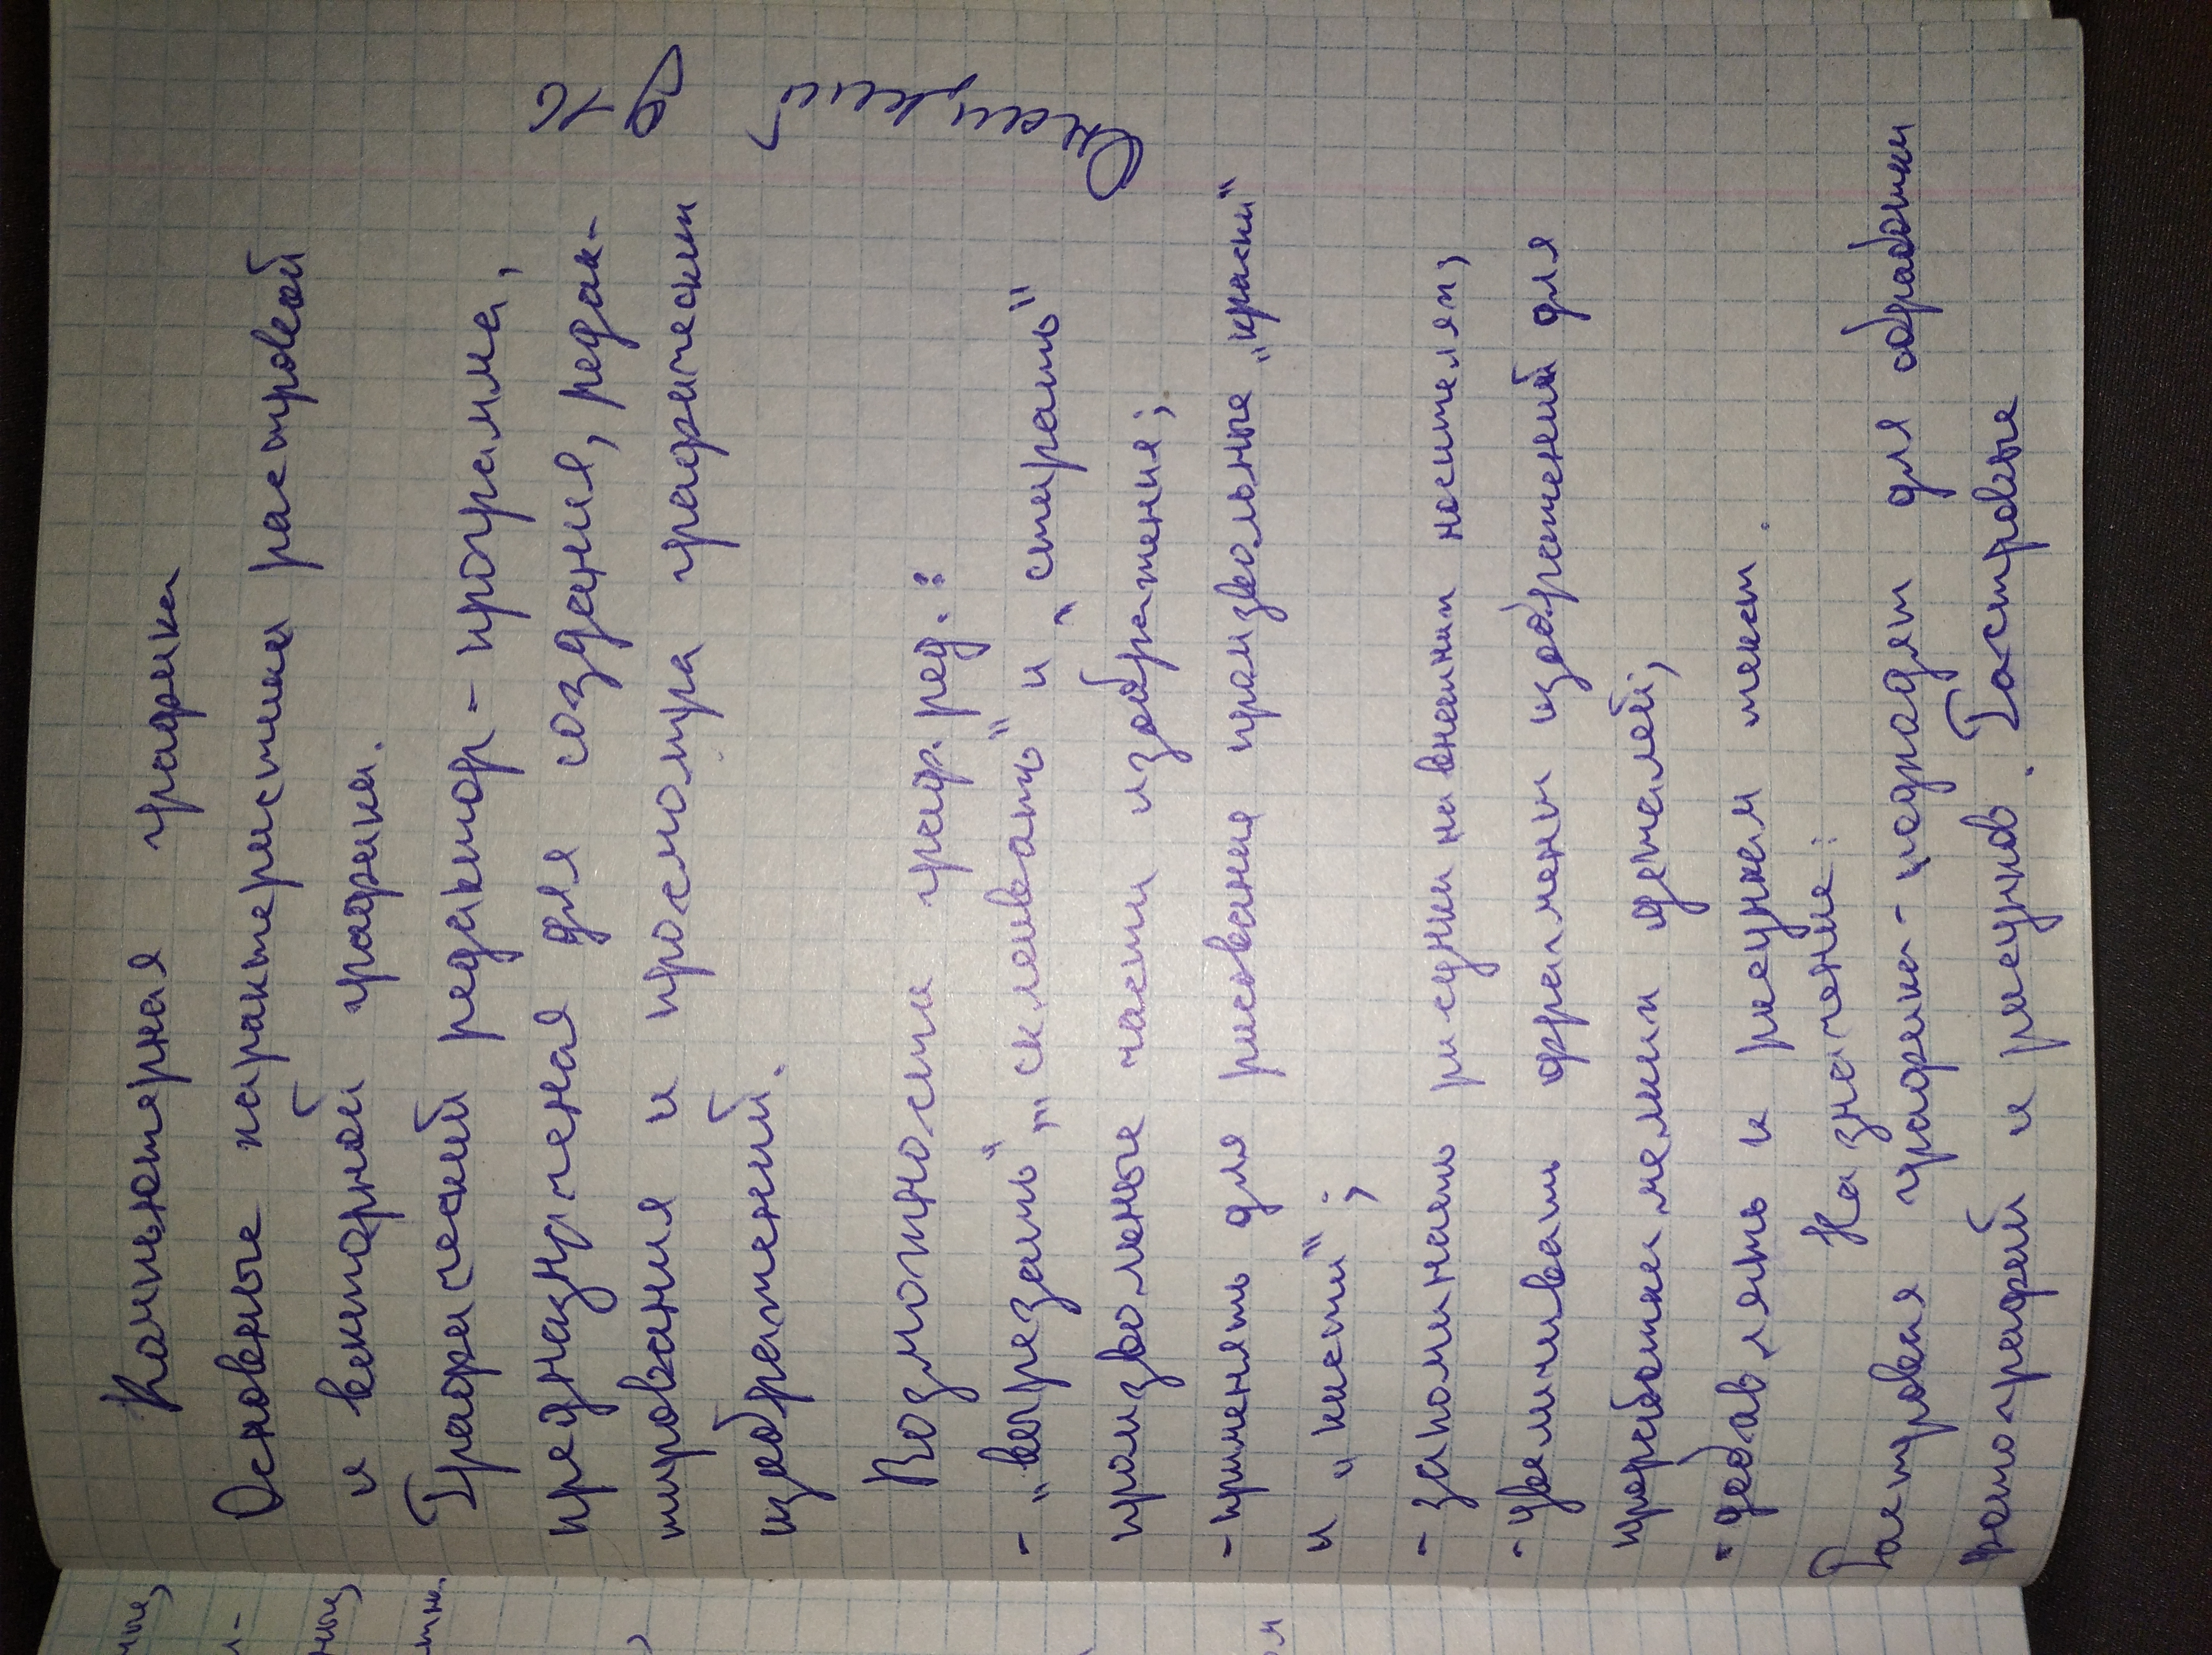 Компьютерная графика
Основные характеристики растровой
и векторной графики.
Графический редактор - програма,
предназначеная для создания, редак-
тирования и просмотра графически
изображений.
Возможности граф. ред.:
- „вырезать", „склеивать" и „стирать"
произвольные части изображения;
- применять для рисования произвольные „краски"
и „кисти";
- запоминать рисунки на внешних носителях;
- увеличивать фрагменты изображений для
проработки мелких деталей;
- добавлять к рисункам текст.
Назначение:
Растровая графика - подходит для обработки
фотографий и рисунков. Растровые